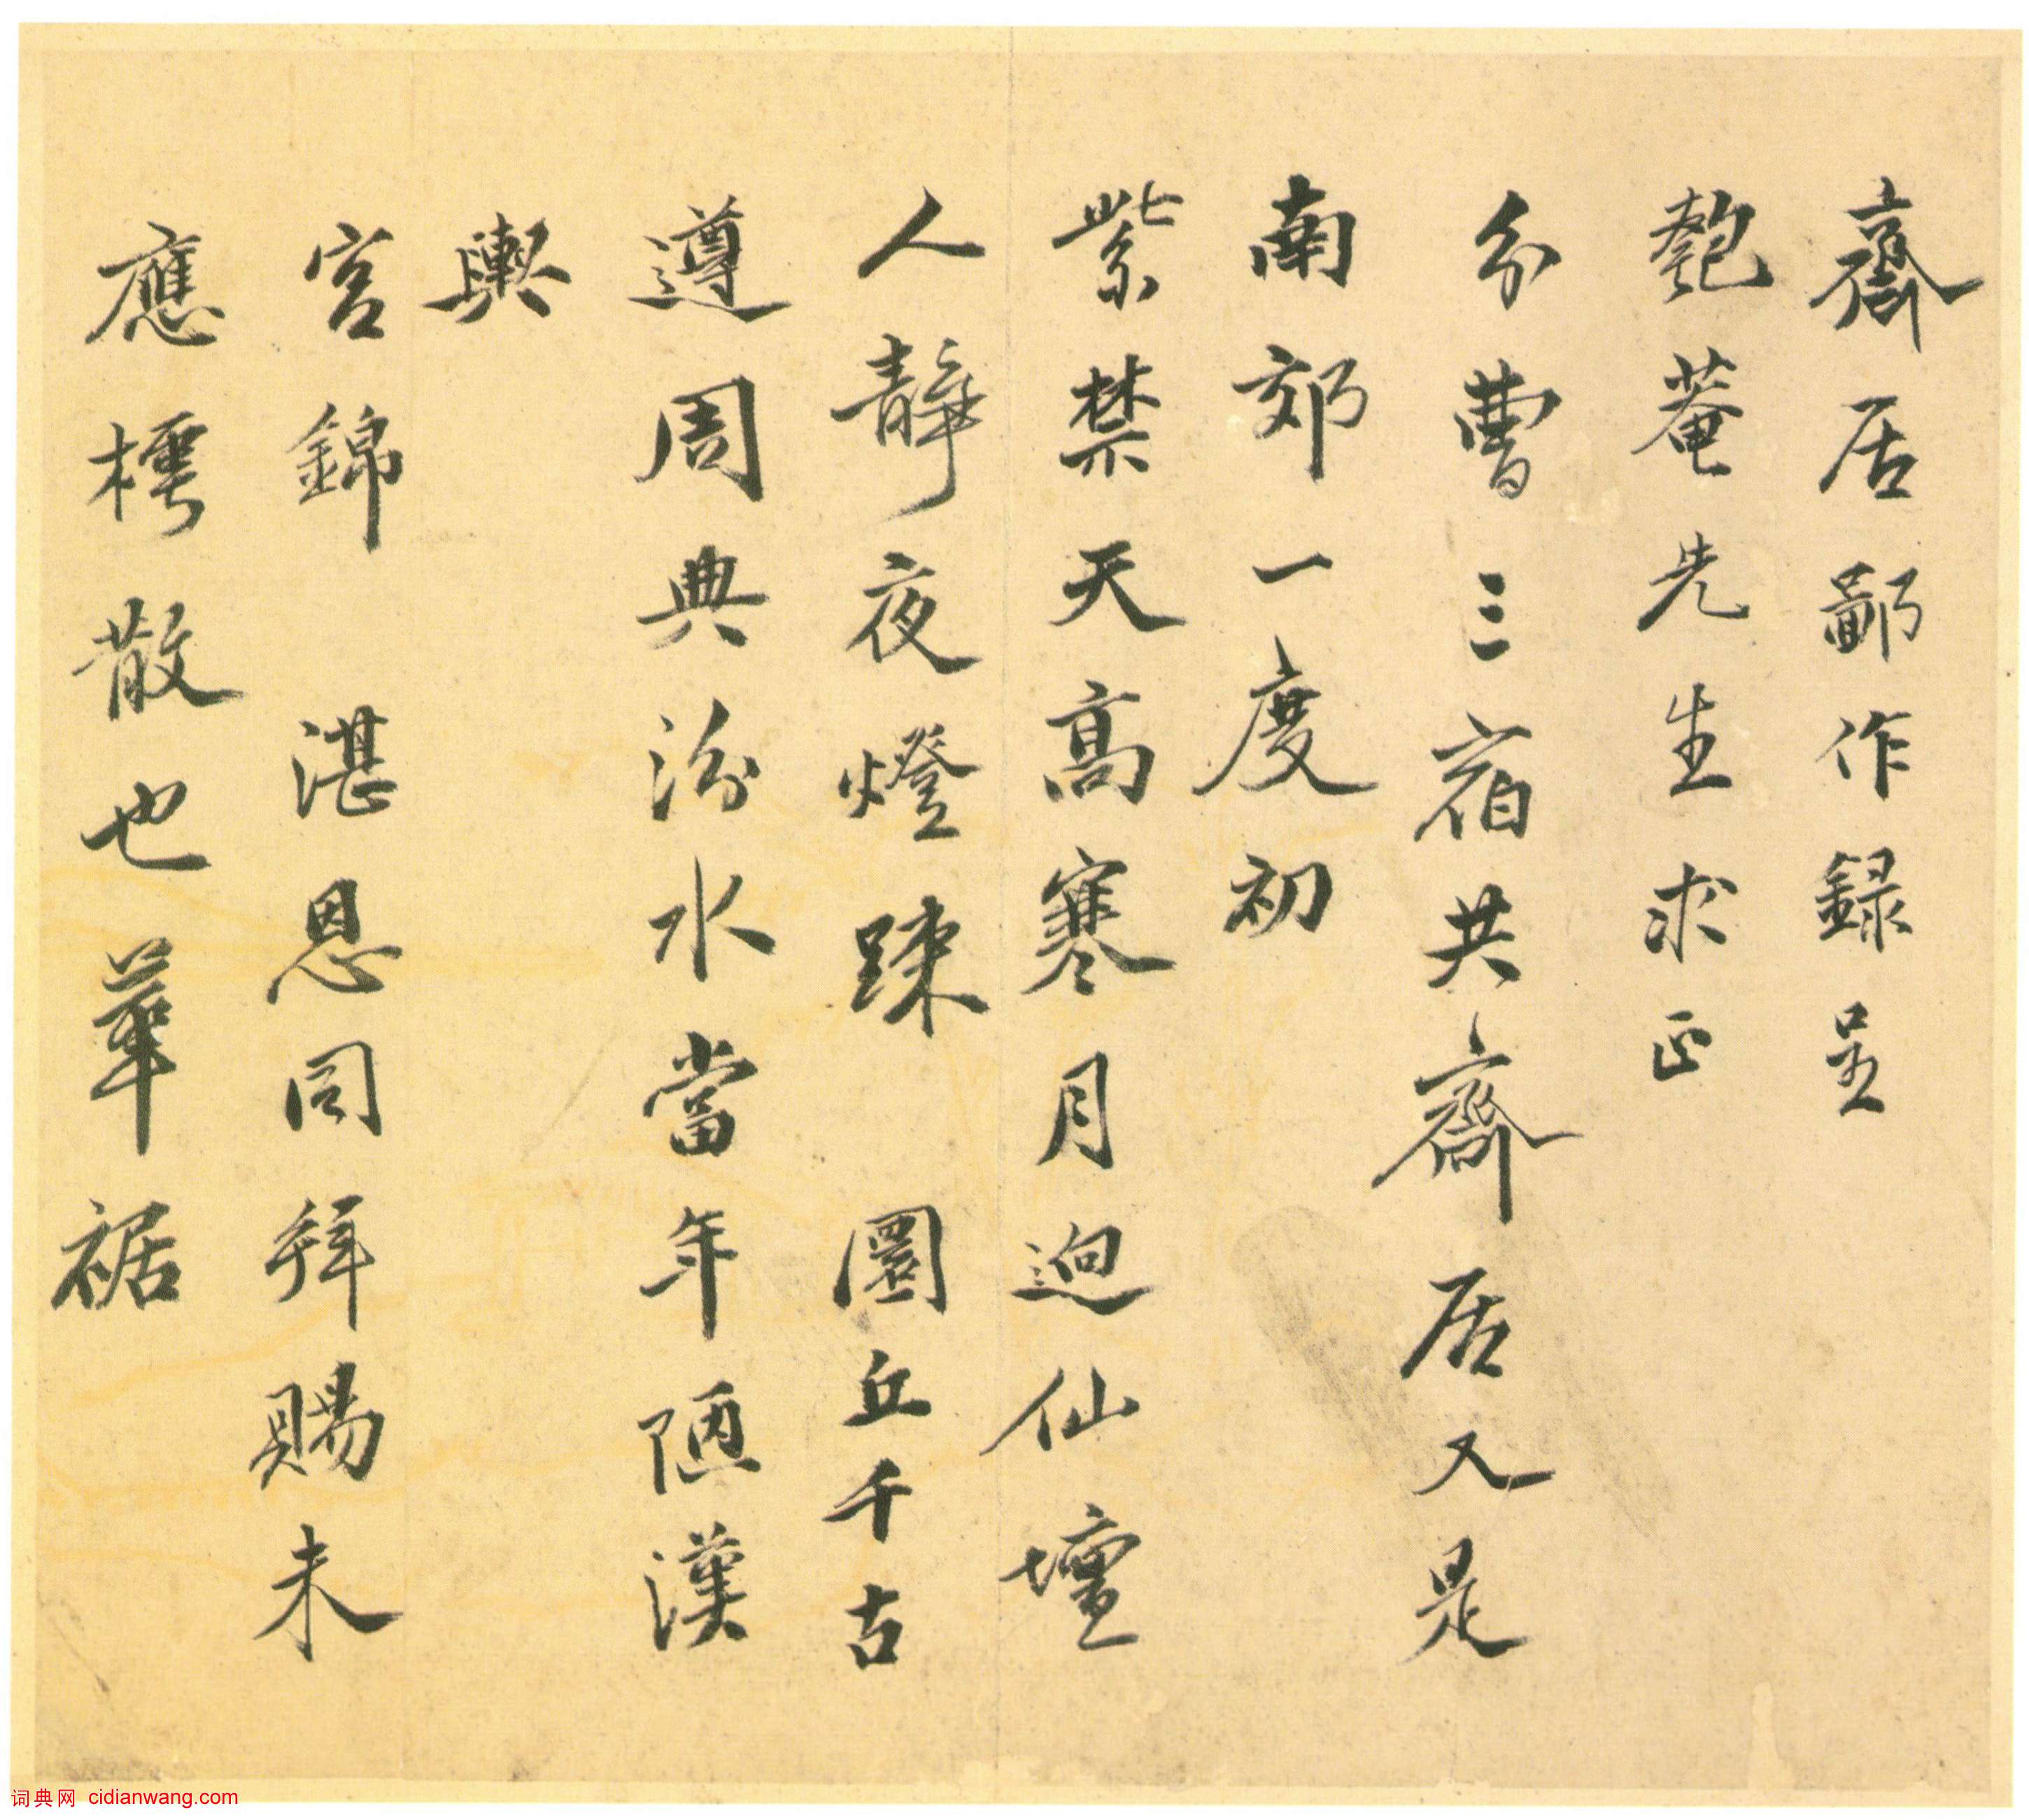 齋居鄙作録呈
匏菴先生求正
分曹三宿共齋居又是
南郊一度初
紫禁天高寒月迥仙壇
人靜夜燈踈 圜丘千古
遵周典汾水當年陋漢
輿
宮錦 湛恩同拜賜未
應樗散也華裾
词典网 cidianwang.com